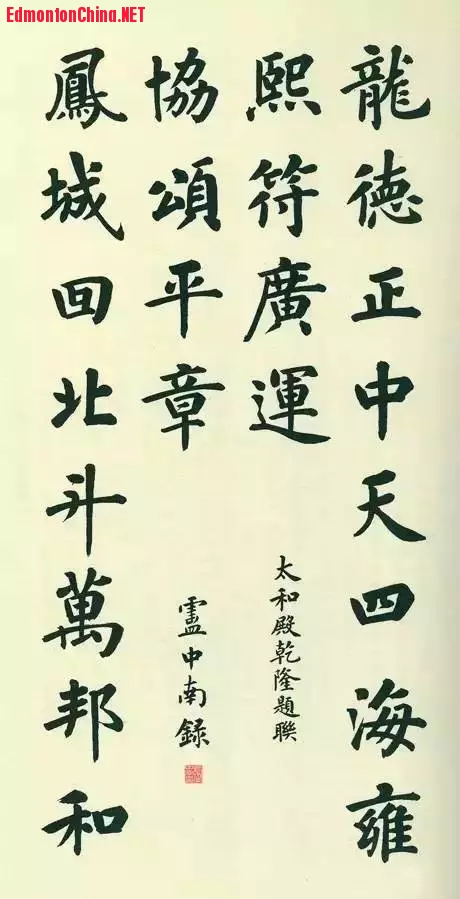 EdmontonChina.NET
龍德正中天四海雍
熙符廣運
太和殿乾隆題聯
鳳城囬北斗萬邦和
協頌平章
盧中南錄